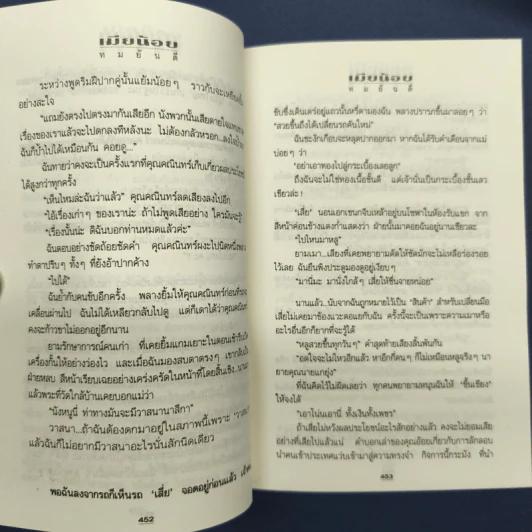 เมียน้อย
ทมยันตี
ระหว่างพูดริมฝีปากคู่นั้นแย้มน้อยๆ ราวกับจะเหยียด
อย่างสะใจ
"แถมยังตรงไปตรงมากันเสียอีก นังพวกนั้นเสียดายใจ
เรื่องของเราแล้วจะไปตกลงที่หลังน่ะ ไม่ต้องกลัวหรอก
ฉันก็บ้าไปได้เหมือนกัน คอยดู..."
ฉันทายว่าคงจะเป็นครั้งแรกที่คุณคณินทร์เก็บเกี่ยวผล
ได้สูงกว่าทุกครั้ง
"เห็นไหมล่ะฉันว่าแล้ว" คุณคณินทร์ลดเสียงลงไปอีก
"ไอ้เรื่องเก่าๆ ของเราน่ะ ถ้าไม่พูดเสียอย่าง ใครมันจะรู้"
"เรื่องนั้นน่ะ ดิฉันบอกท่านหมดแล้วค่ะ"
ฉันตอบอย่างชัดถ้อยชัดคำ คุณคณินทร์ผงะไปนิดหนึ่ง
ทำตาปริบๆ ทั้งๆ ที่ยังอ้าปากค้าง
"ไปได้"
ฉันย้ำกับคนขับอีกครั้ง พลางยิ้มให้คุณคณินทร์ก่อนที่รถจะ
เคลื่อนผ่านไป ฉันไม่ได้เหลียวกลับไปดู แต่ก็เดาได้ว่าคุณคณินทร์
คงจะก้าวขาไม่ออกอยู่อีกนาน
ยามรักษาการณ์คนเก่า ที่เคยยิ้มแกมเยาะในตอนเช้า
เครื่องกั้นให้อย่างว่องไว และเมื่อฉันมองสบตาตรงๆ เขากลับเป็น
ฝ่ายหลบ สีหน้าเรียบเฉยอย่างเคร่งครัดในหน้าที่โดยสิ้นเชิง
แล้วพระที่วัดใกล้บ้านเคยบอกแม่ว่า
"นังหนูนี่ ท่าทางมันจะมีวาสนานาสีกา"
วาสนา...ถ้าฉันต้องตกมาอยู่ในสภาพนี้เพราะ 'วาสนา'
แล้วฉันก็ไม่อยากมีวาสนาอะไรนั่นสักนิดเดียว
พอฉันลงจากรถก็เห็นรถ 'เสี่ย' จอดอยู่ก่อนแล้ว
452
เมียน้อย
ทมยันตี
ขับซึ่งเดินเตร่อยู่แถวนั้นหรี่ตามองฉัน พลางปรารภขึ้นมาลอยๆ ว่า
"สวยขึ้นถึงได้เปลี่ยนรถคันใหม่"
ฉันชะงักเกือบจะหลุดปากออกมา หากฉันได้รับคำเตือนจากแม่
บ่อยๆ ว่า
"อย่าเอาทองไปลู่กระเบื้องเลยลูก"
ถึงฉันจะไม่ใช่ทองเนื้อชั้นดี แต่เจ้านั่นเป็นกระเบื้องชั้นเลว
เชียวล่ะ !
"เสี่ย" นอนเอกเขนกจิบเหล้าอยู่บนโซฟาในห้องรับแขก จาก
สีหน้าค่อนข้างแดงก่ำแสดงว่า ฝ่ายนั้นมาคอยฉันอยู่นานเชียวละ
"ไปไหนมาหนู"
ยามเมา...เสียงที่เคยพยายามดัดให้ชัดมักจะไม่เหลือร่องรอย
ไว้เลย ฉันยืนพิงประตูมองดูอยู่เงียบๆ
"มานี่มะ มานั่งใกล้ๆ เสี่ยให้ชื่นจายหน่อย"
นานแล้ว..นับจากฉันถูกหมายไว้เป็น "สินค้า" สำหรับเปลี่ยนมือ
เสี่ยไม่เคยมาข้องแวะตอแยกับฉัน ครั้งนี้จะเป็นเพราะความเมาหรือ
อะไรอื่นอีกก็ยากที่จะรู้ได้
"หนูสวยขึ้นทุกวันๆ" คำสุดท้ายเสียงลิ้นพันกัน
"อดใจจะไม่ไหวอีกแล้ว หาอีกกี่คนๆ ก็ไม่เหมือนหนูจริงๆ นา
ยายคุณนายแกยุ่ง"
ที่ฉันคิดไว้ไม่ผิดเลยว่า ทุกคนพยายามหนุนฉันให้ "ขึ้นเขียง"
ให้จงได้
"เอาโน่นเอานี่ ทั้งเงินทั้งเพชร"
ถ้าเสี่ยไม่หวังผลประโยชน์อะไรสักอย่างแล้ว คงจะไม่ยอมเสีย
อย่างที่เสียไปแล้วแน่ คำบอกเล่าของคุณย้อยเกี่ยวกับการลักลอบ
นำคนเข้าประเทศแว่บเข้ามาสู่ความทรงจำ กิจการนี้กระมัง ที่นำ
453